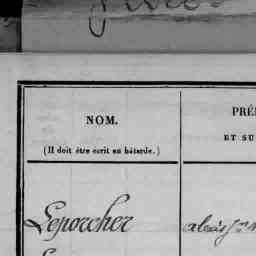 NOM.
PRÉ
(Il doit être écrit en bâtarde.)
ET SU
Leporcher alexis